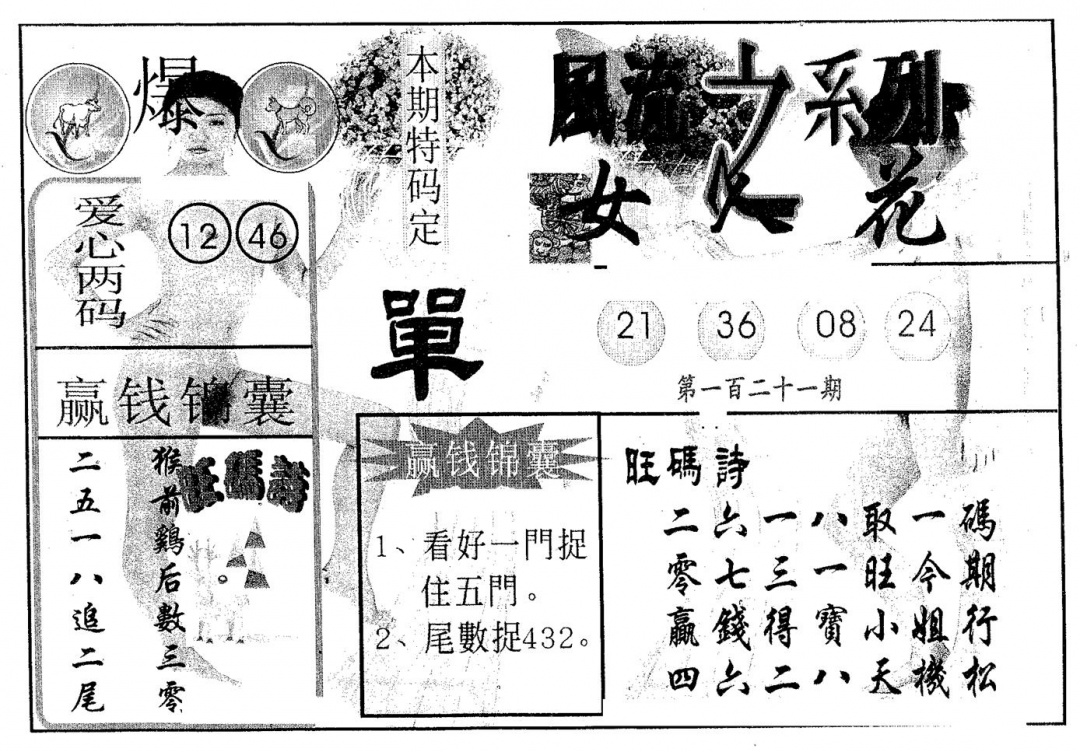 爆
本期特码定
單
爱心两码
12 46
赢钱锦囊
旺碼詩
猴前鷄后數三零
二五一八追二尾
赢钱锦囊
1、看好一門捉
住五門。
2、尾數捉432。
風流之系列
女人花
21 36 08 24
第一百二十一期
旺碼詩
二六一八取一碼
零七三一旺今期
贏錢得寶小姐行
四六二八天機松